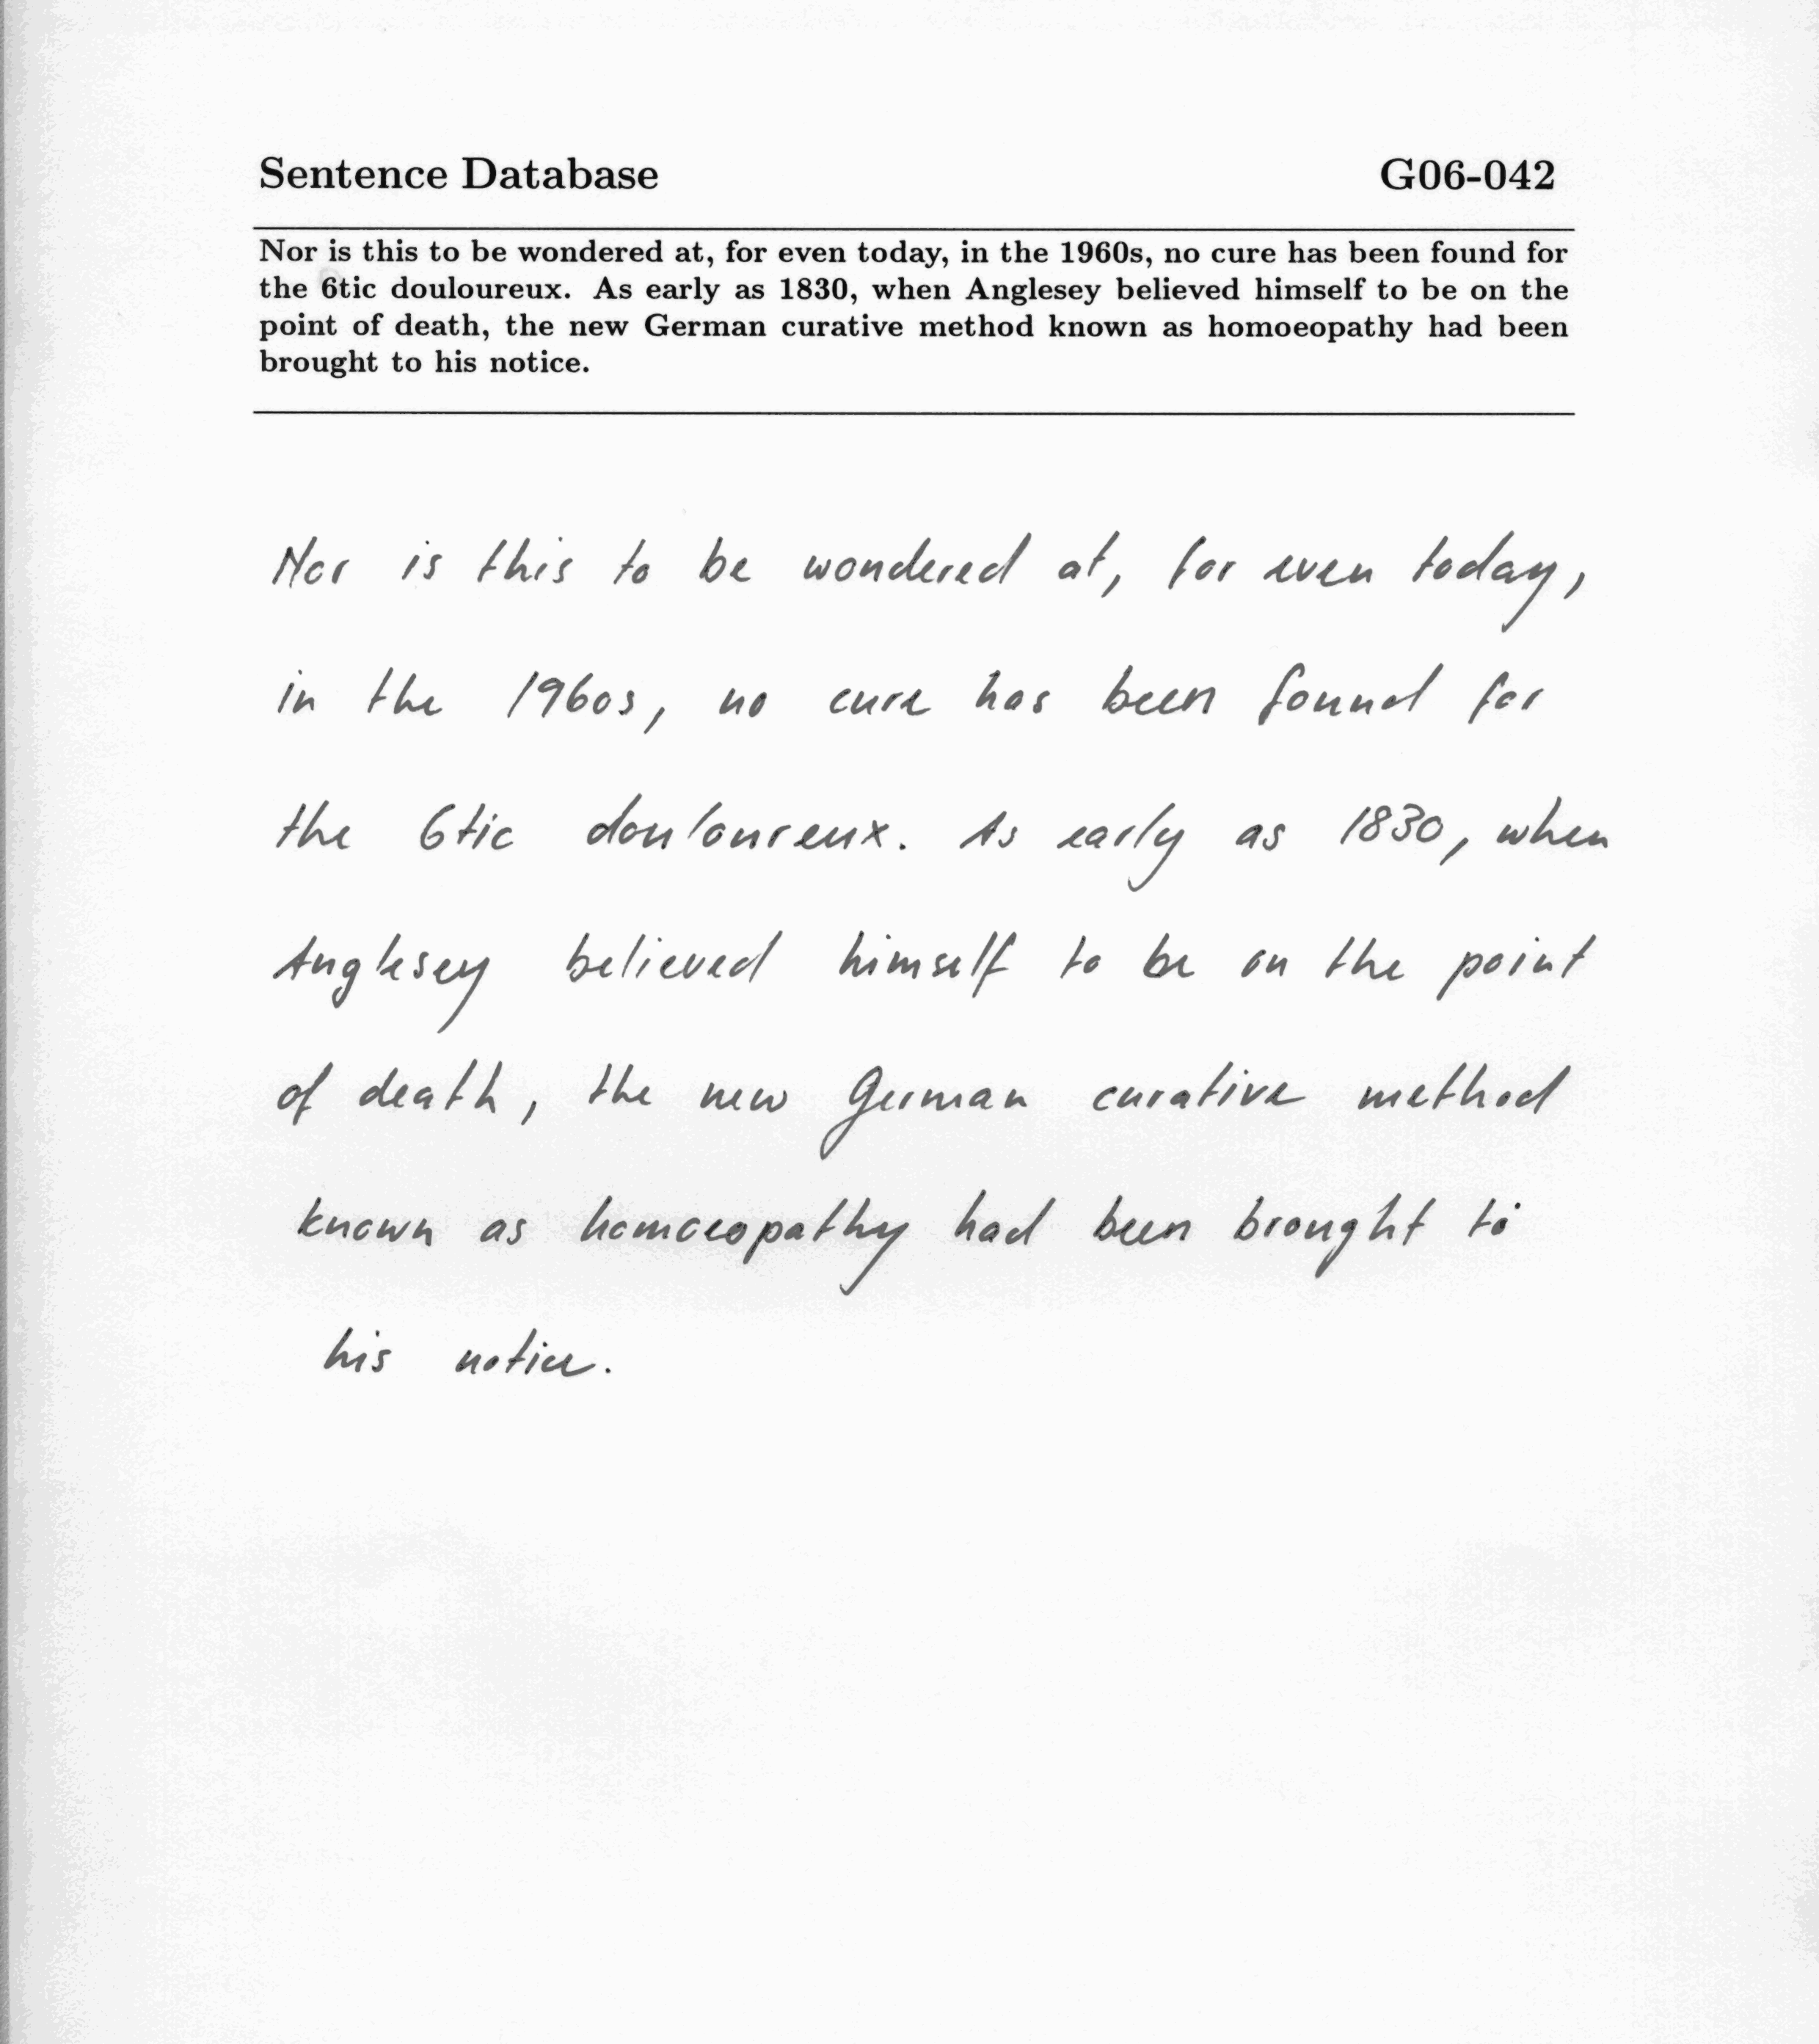 Sentence Database G06-042
Nor is this to be wondered at, for even today, in the 1960s, no cure has been found for
the 6tic douloureux. As early as 1830, when Anglesey believed himself to be on the
point of death, the new German curative method known as homoeopathy had been
brought to his notice.
Nor is this to be wondered at, for even today,
in the 1960s, no cure has been found for
the 6tic douloureux. As early as 1830, when
Anglesey believed himself to be on the point
of death, the new German curative method
known as homoeopathy had been brought to
his notice.